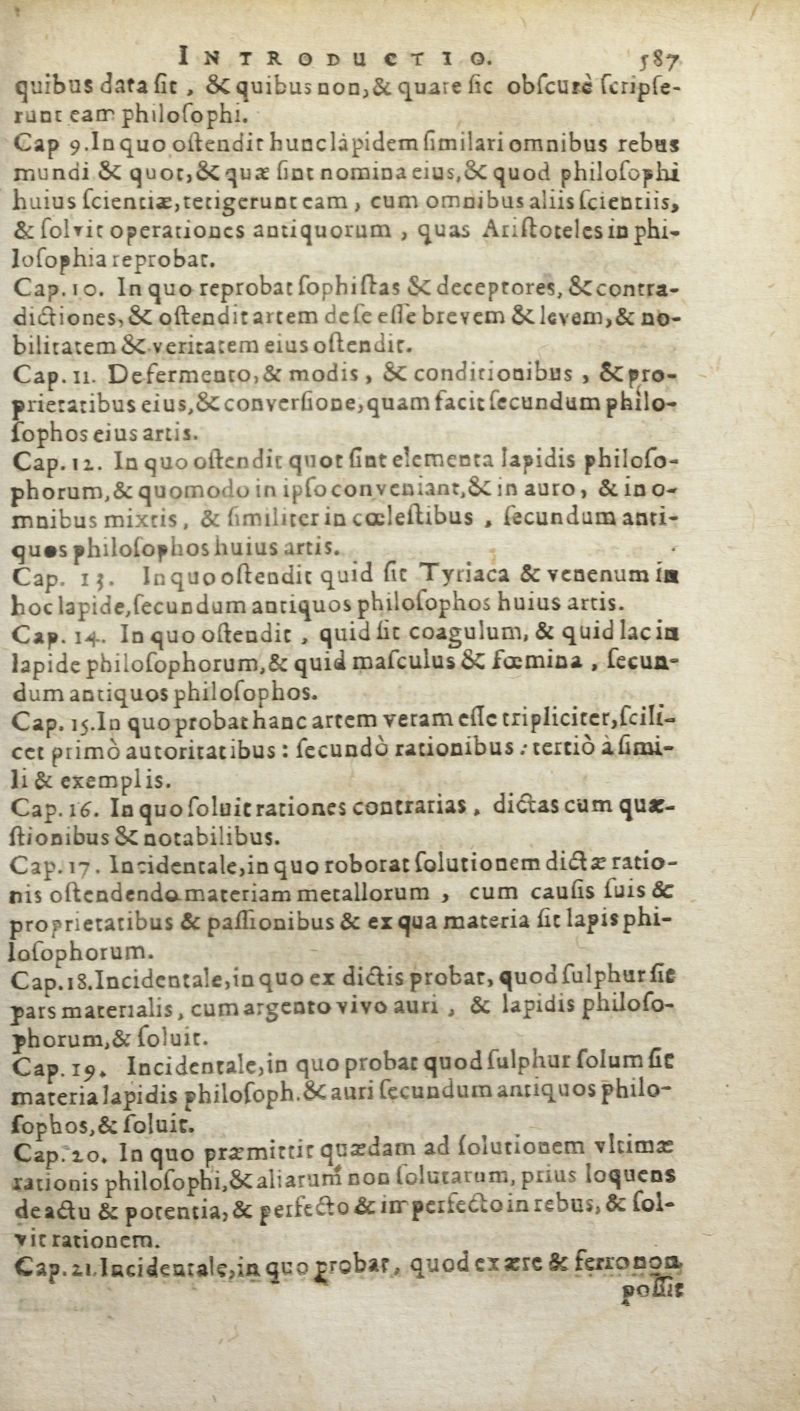 INTRODUCTIO. 587
quibus data ſit, & quibus non, & quare ſic obſcurè ſcripſe-
runt eam philoſophi.
Cap 9. In quo oſtendit hunc lapidem ſimilari omnibus rebus
mundi & quot, & quæ ſint nomina eius, & quod philoſophi
huius ſcientiæ, tetigerunt eam, cum omnibus aliis ſcientiis,
& ſolvit operationes antiquorum, quas Ariſtoteles in phi-
loſophia reprobat.
Cap. 10. In quo reprobat ſophiſtas & deceptores, & contra-
dictiones, & oſtendit artem de ſe eſſe brevem & levem, & no-
bilitatem & veritatem eius oſtendit.
Cap. 11. De fermento, & modis, & conditionibus, & pro-
prietatibus eius, & converſione, quam facit ſecundum philo-
ſophos eius artis.
Cap. 12. In quo oſtendit quot ſint elementa lapidis philoſo-
phorum, & quomodo in ipſo conveniant, & in auro, & in o-
mnibus mixtis, & ſimiliter in cœleſtibus, ſecundum anti-
quos philoſophos huius artis.
Cap. 13. In quo oſtendit quid ſit Tyriaca & venenum in
hoc lapide, ſecundum antiquos philoſophos huius artis.
Cap. 14. In quo oſtendit, quid ſit coagulum, & quid lac in
lapide philoſophorum, & quid maſculus & fœmina, ſecun-
dum antiquos philoſophos.
Cap. 15. In quo probat hanc artem veram eſſe tripliciter, ſcili-
cet primò autoritatibus: ſecundò rationibus: tertiò à ſimi-
li & exemplis.
Cap. 16. In quo ſoluit rationes contrarias, dictas cum quæ-
ſtionibus & notabilibus.
Cap. 17. Incidentale, in quo roborat ſolutionem dictæ ratio-
nis oſtendendo materiam metallorum, cum cauſis ſuis &
proprietatibus & paſſionibus & ex qua materia fit lapis phi-
loſophorum.
Cap. 18. Incidentale, in quo ex dictis probat, quod ſulphur ſit
pars materialis, cum argento vivo auri, & lapidis philoſo-
phorum, & ſoluit.
Cap. 19. Incidentale, in quo probat quod ſulphur ſolum ſit
materia lapidis philoſoph. & auri ſecundum antiquos philo-
ſophos, & ſoluit.
Cap. 20. In quo præmittit quædam ad ſolutionem vltimæ
rationis philoſophi, & aliarum non ſolutarum, prius loquens
de actu & potentia, & perfecto & imperfecto in rebus, & ſol-
vit rationem.
Cap. 21. Incidentale, in quo probat, quod ex ære & ferro non
poſſit